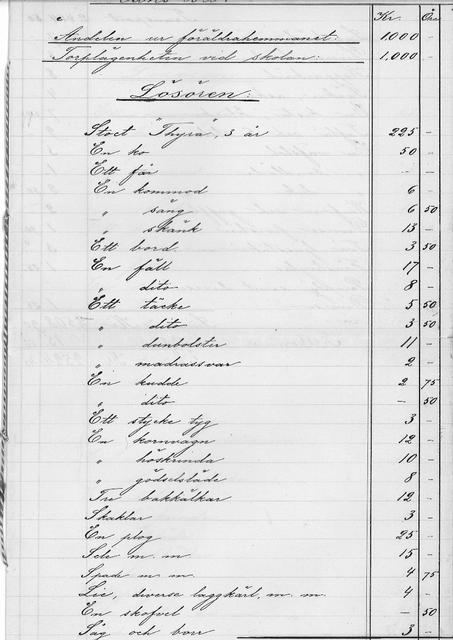 Kr. Öre
Andelen ur föräldrahemmanet: 1000 –
Torplägenheten ved skolan: 1,000 –
Lösören:
Stoet "Thyra", 3 år 225 –
En ko 50 –
Ett får – –
En kommod 6 –
„ säng 6 50
„ skänk 13 –
Ett bord 3 50
En fäll 17 –
„ dito 8 –
Ett täcke 5 50
„ dito 3 50
„ dunbolster 11 –
„ madrassvar 2 –
En kudde 2 75
„ dito – 50
Ett stycke tyg 3 –
En kornvagn 12 –
„ höskrinda 10 –
„ gödselsläde 8 –
Tre bakkälkar 12 –
Skaklar 3 –
En plog 25 –
Sele m. m 15 –
Spade m. m. 4 75
Lie, diverse laggkärl, m. m. 4 –
En skofvel – 50
Såg och borr 3 –